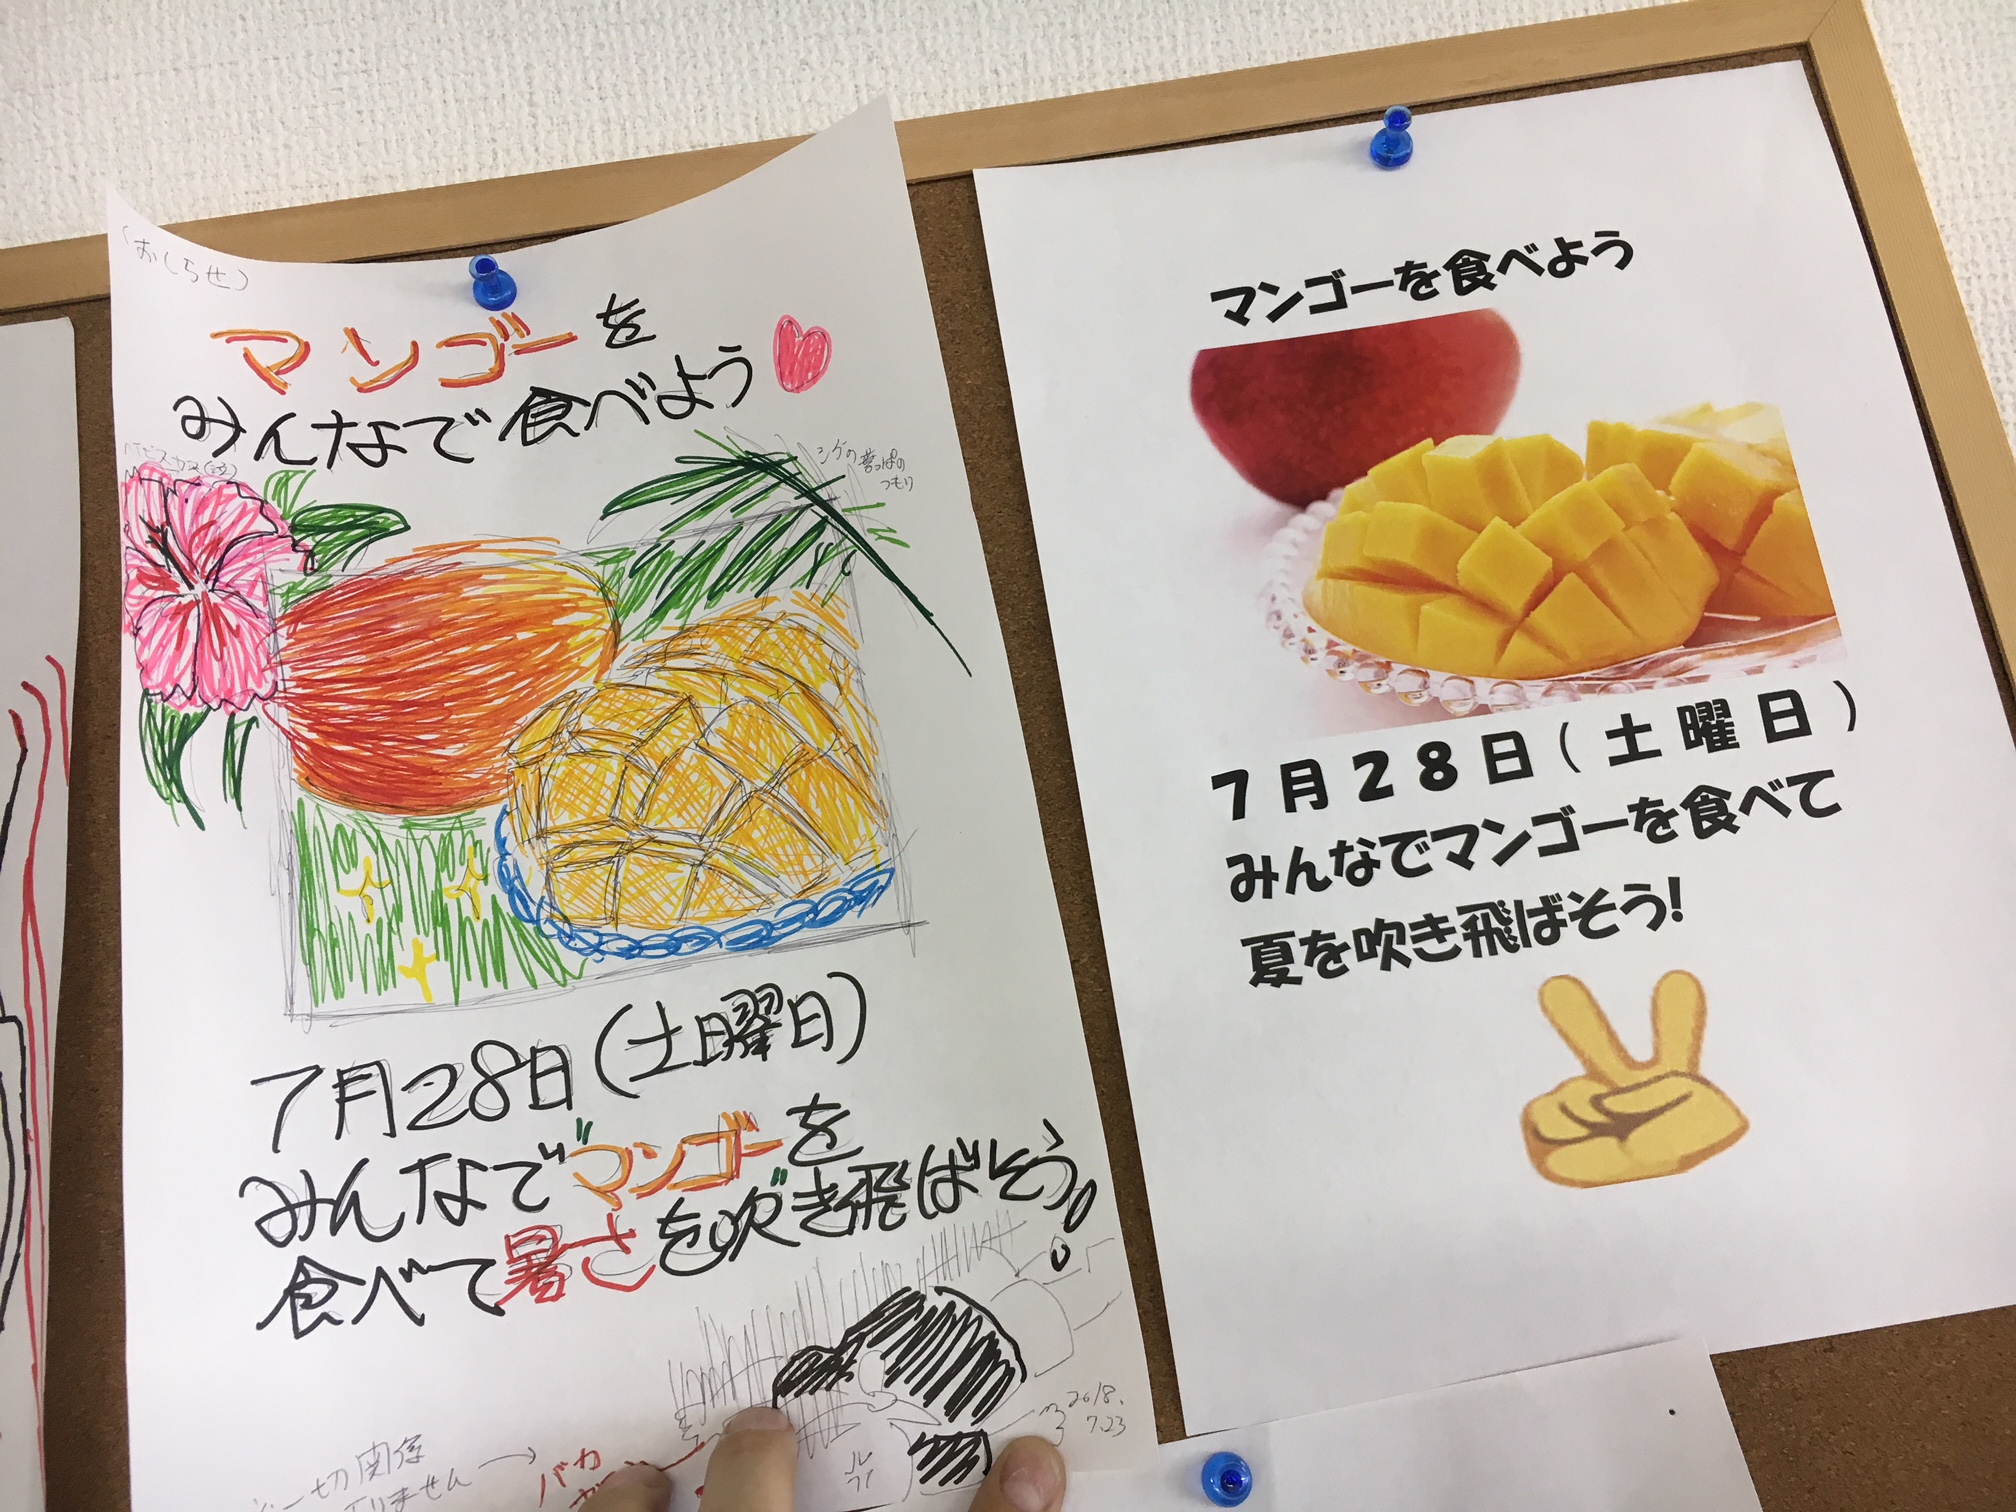 (おしらせ)
マンゴーを
みんなで食べよう
ハイビスカス(注)
シダの葉っぱの
つもり
7月28日(土曜日)
みんなでマンゴーを
食べて暑さを吹き飛ばそう!
2018.
7.23
一切関係
ありません→
バカ
マンゴーを食べよう
7月28日(土曜日)
みんなでマンゴーを食べて
夏を吹き飛ばそう!